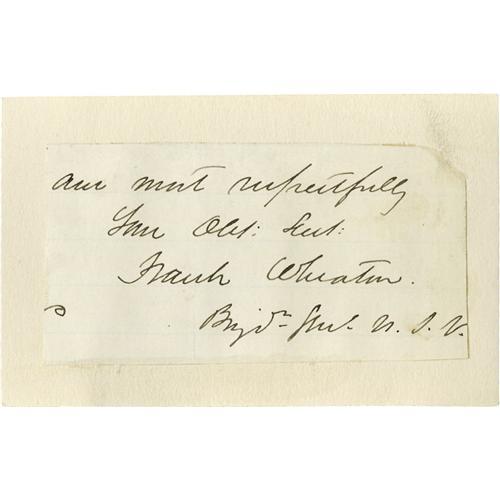 am most respectfully
Your Obt: Svt:
Frank Wheaton.
Brigdr Genl. U. S. V.